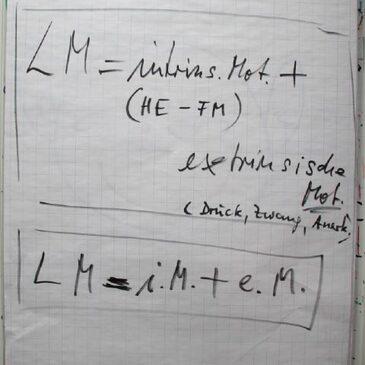 LM = intrins. Mot. +
(HE - FM)
extrinsische
Mot.
(Druck, Zwang, Anerk.)
LM = i.M. + e.M.